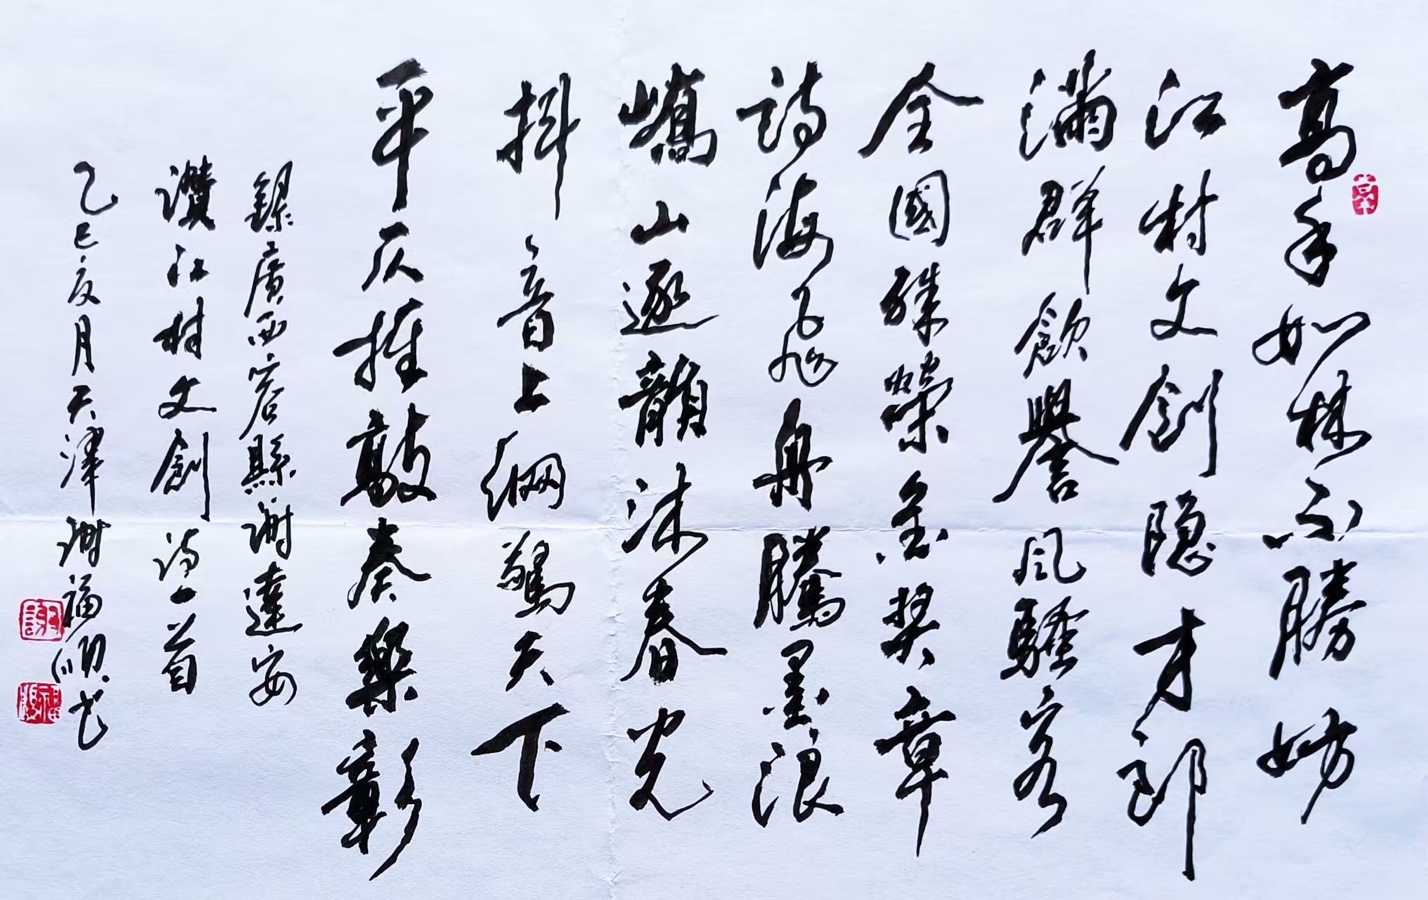 高手如林不勝妨
江村文創隐才郎
滿群飲譽风騷客
全國殊榮金奖章
詩海飛舟騰墨浪
嶠山逐韻沐春光
抖音上網驚天下
平仄推敲奏樂彰
錄廣西容縣謝達安
讚江村文創诗一首
乙巳亥月天津謝福順书
謝